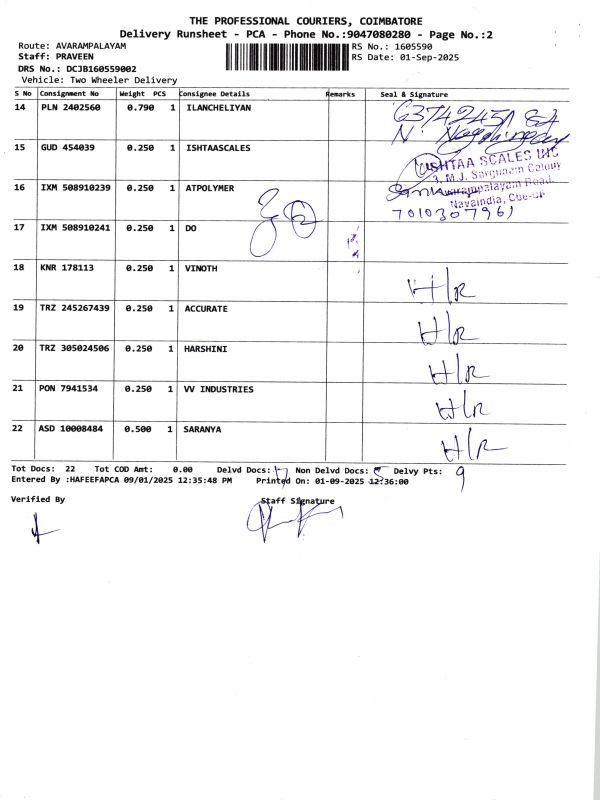 THE PROFESSIONAL COURIERS, COIMBATORE
Delivery Runsheet - PCA - Phone No.:9047080280 - Page No.:2
Route: AVARAMPALAYAM RS No.: 1605590
Staff: PRAVEEN RS Date: 01-Sep-2025
DRS No.: DCJB160559002
Vehicle: Two Wheeler Delivery
S No Consignment No Weight PCS Consignee Details Remarks Seal & Signature
14 PLN 2402560 0.790 1 ILANCHELIYAN
15 GUD 454039 0.250 1 ISHTAASCALES
ISHTAA SCALES INC
3, M.J. Colony
Avarampalayam Road,
Navaindia,
16 IXM 508910239 0.250 1 ATPOLYMER
7010307961
17 IXM 508910241 0.250 1 DO
18 KNR 178113 0.250 1 VINOTH H/R
19 TRZ 245267439 0.250 1 ACCURATE H/R
20 TRZ 305024506 0.250 1 HARSHINI H/R
21 PON 7941534 0.250 1 VV INDUSTRIES H/R
22 ASD 10008484 0.500 1 SARANYA H/R
Tot Docs: 22 Tot COD Amt: 0.00 Delvd Docs: 17 Non Delvd Docs: 5 Delvy Pts: 9
Entered By :HAFEEFAPCA 09/01/2025 12:35:48 PM Printed On: 01-09-2025 12:36:00
Verified By Staff Signature